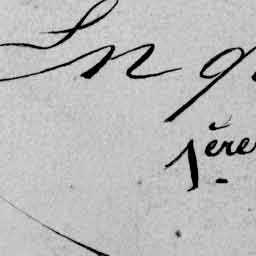 In q
1ère